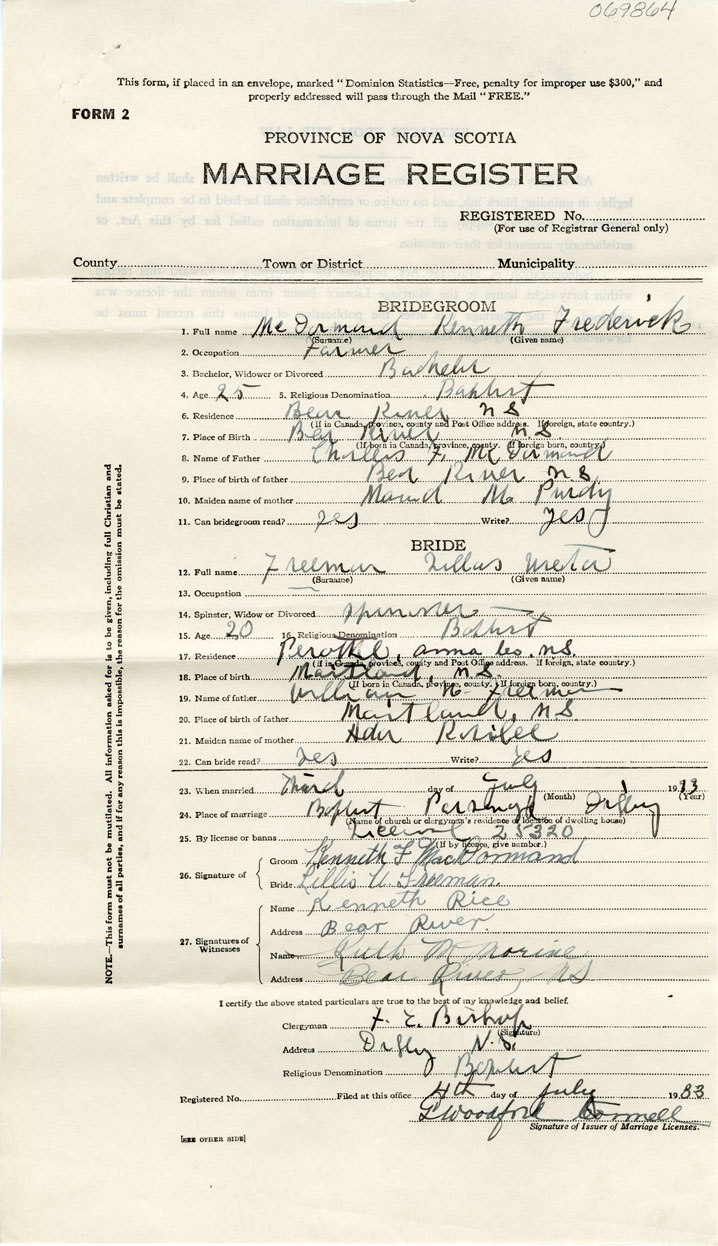 069864
This form, if placed in an envelope, marked "Dominion Statistics—Free, penalty for improper use $300," and
properly addressed will pass through the Mail "FREE."
FORM 2
PROVINCE OF NOVA SCOTIA
MARRIAGE REGISTER
REGISTERED No.
(For use of Registrar General only)
County Town or District Municipality
BRIDEGROOM
1. Full name McDormand Kenneth Frederick
(Surname) (Given name)
2. Occupation Farmer
3. Bachelor, Widower or Divorced Bachelor
4. Age 25 5. Religious Denomination Baptist
6. Residence Bear River, NS
(If in Canada, province, county and Post Office address. If foreign, state country.)
7. Place of Birth Bear River N.S
(If born in Canada, province, county. If foreign born, country.)
8. Name of Father Charles F. McDormand
9. Place of birth of father Bear River N.S.
10. Maiden name of mother Maud M. Purdy
11. Can bridegroom read? yes Write? yes
BRIDE
12. Full name Freeman
(Surname) (Given name)
13. Occupation —
14. Spinster, Widow or Divorced Spinster
15. Age 20 16. Religious Denomination Baptist
17. Residence Perotte, Anna Co. N.S.
(If in Canada, province, county and Post Office address. If foreign, state country.)
18. Place of birth Maitland, N.S.
(If born in Canada, province, county. If foreign born, country.)
19. Name of father William H. Freeman
20. Place of birth of father Maitland, NS
21. Maiden name of mother
22. Can bride read? yes Write? yes
23. When married Third day of July 1933
(Month) (Year)
24. Place of marriage Baptist Parsonage Digby
(Name of church or clergymen's residence or location of dwelling house)
25. By license or banns License 25320
(If by licence, give number.)
26. Signature of
Groom Kenneth F MacDormand
Bride Lillis U. Freeman.
27. Signatures of Witnesses
Name Kenneth Rice
Address Bear River.
Name Ruth M Morine
Address Bear River, NS
I certify the above stated particulars are true to the best of my knowledge and belief.
Clergyman F. E. Bishop
(Signature)
Address Digby N.S.
Religious Denomination Baptist
Registered No. Filed at this office 4th day of July 1933
Woodford Connell
Signature of Issuer of Marriage Licenses.
[SEE OTHER SIDE]
NOTE.—This form must not be mutilated. All information asked for is to be given, including full Christian and
surnames of all parties, and if for any reason this is impossible, the reason for the omission must be stated.